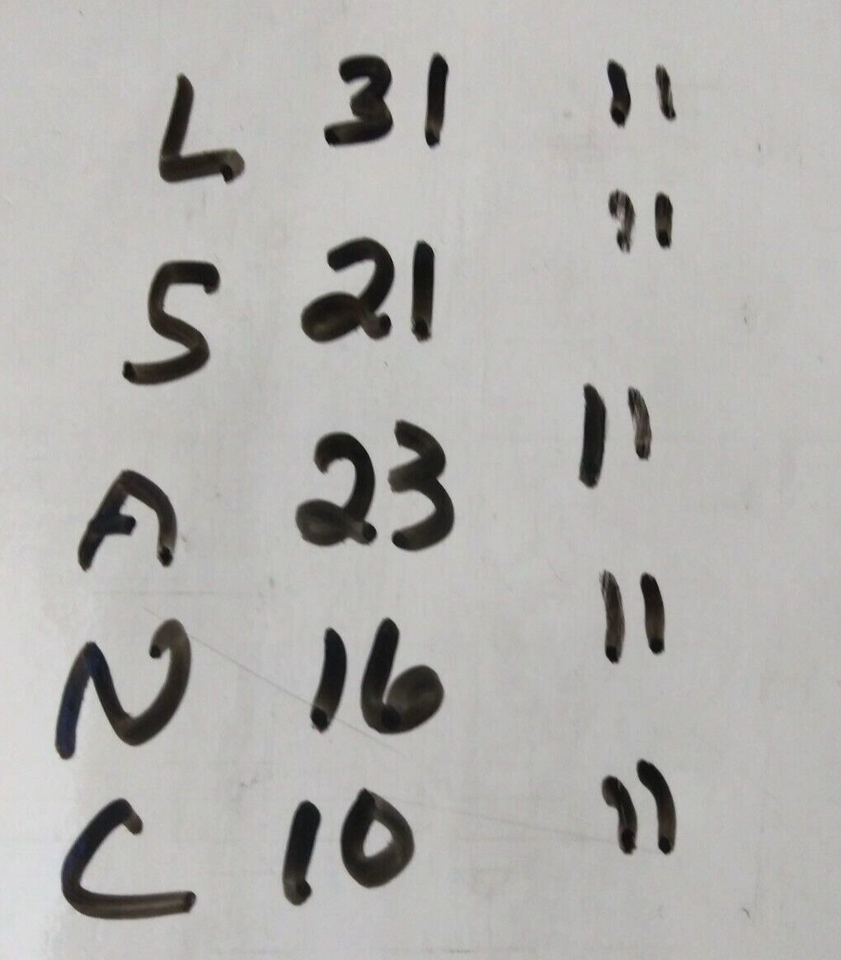 L 31 "
S 21 "
A 23 "
N 16 "
C 10 "